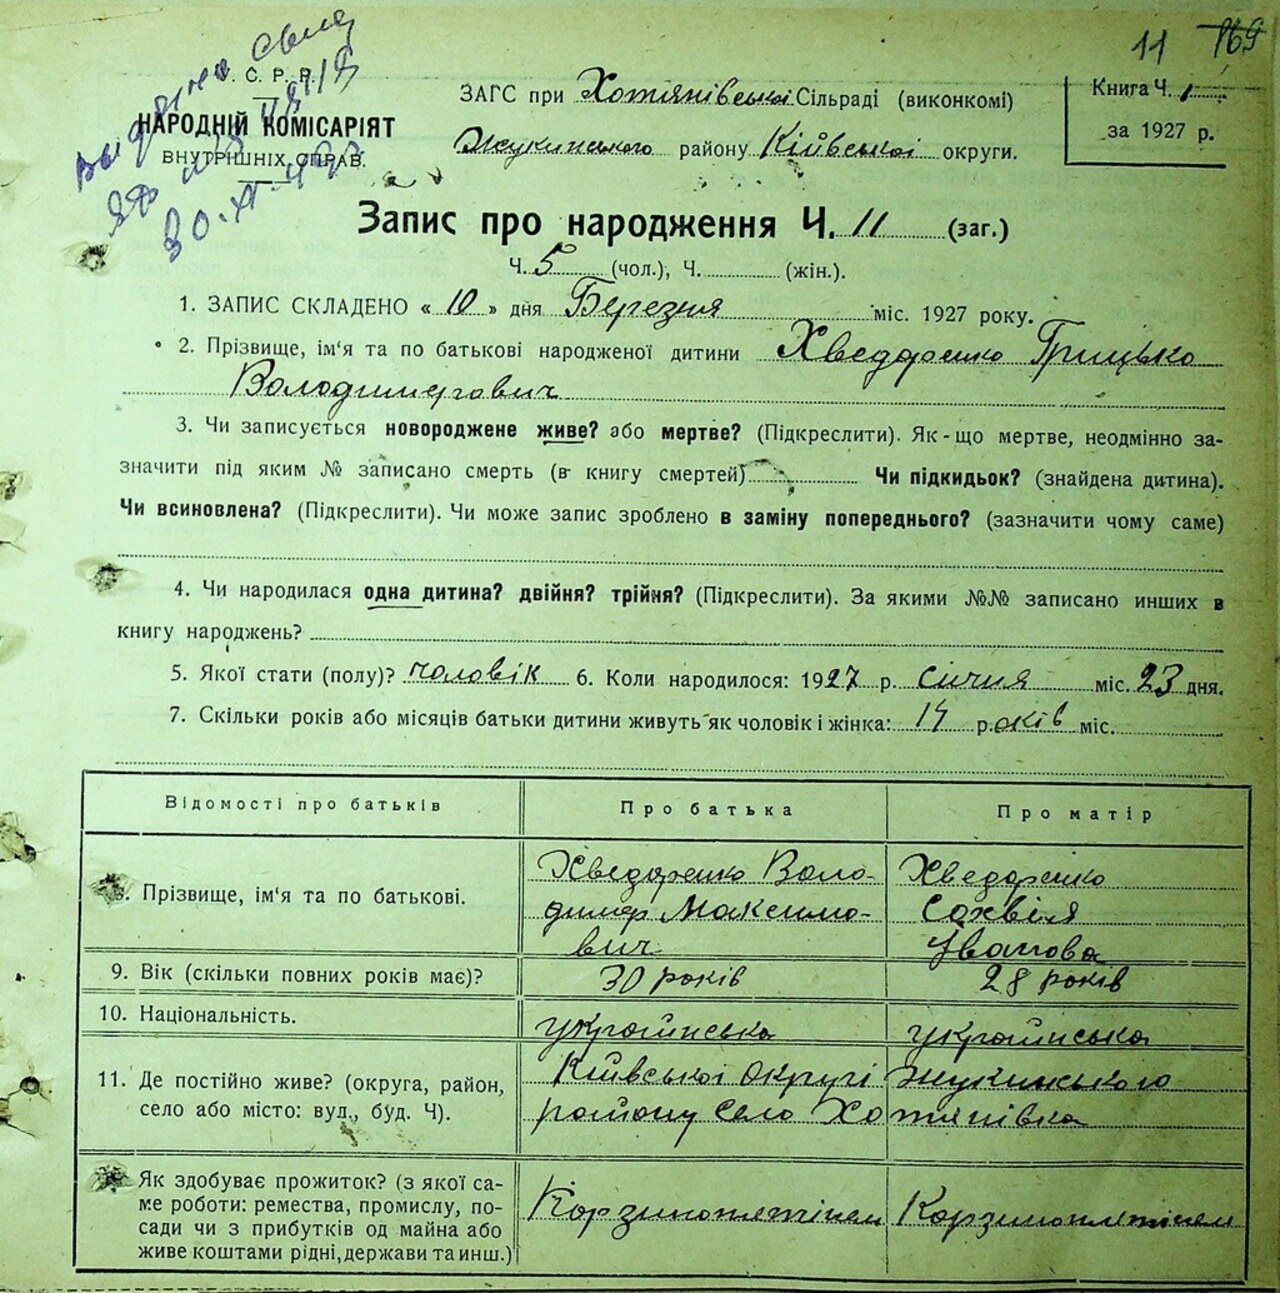 11 169
У. С. Р. Р.
НАРОДНІЙ КОМІСАРІЯТ
ВНУТРІШНІХ СПРАВ.
ЗАГС при Хотянівської Сільраді (виконкомі)
Жукинського району Київської округи.
Книга Ч. 1
за 1927 р.
Запис про народження Ч. 11 (заг.)
Ч. 5 (чол.), Ч. (жін.).
1. ЗАПИС СКЛАДЕНО « 10 » дня Березня міс. 1927 року.
2. Прізвище, ім'я та по батькові народженої дитини Хведоренко Грицько
Володимерович
3. Чи записується новороджене живе? або мертве? (Підкреслити). Як-що мертве, неодмінно за-
значити під яким № записано смерть (в книгу смертей) Чи підкидьок? (знайдена дитина).
Чи всиновлена? (Підкреслити). Чи може запис зроблено в заміну попереднього? (зазначити чому саме)
4. Чи народилася одна дитина? двійня? трійня? (Підкреслити). За якими №№ записано инших в
книгу народжень?
5. Якої стати (полу)? чоловік 6. Коли народилося: 1927 р. січня міс. 23 дня.
7. Скільки років або місяців батьки дитини живуть як чоловік і жінка: 14 років міс.
Відомості про батьків Про батька Про матір
8. Прізвище, ім'я та по батькові. Хведоренко Воло-
димер Максимо-
вич
Хведоренко
Сохвія
Іванова
9. Вік (скільки повних років має)? 30 років 28 років
10. Національність. українська українська
11. Де постійно живе? (округа, район,
село або місто: вул., буд. Ч).
Київської округі Жукинського
району село Хотянівка
Як здобуває прожиток? (з якої са-
ме роботи: ремества, промислу, по-
сади чи з прибутків од майна або
живе коштами рідні, держави та инш.)
Корзиноплетінєм Корзиноплетінєм